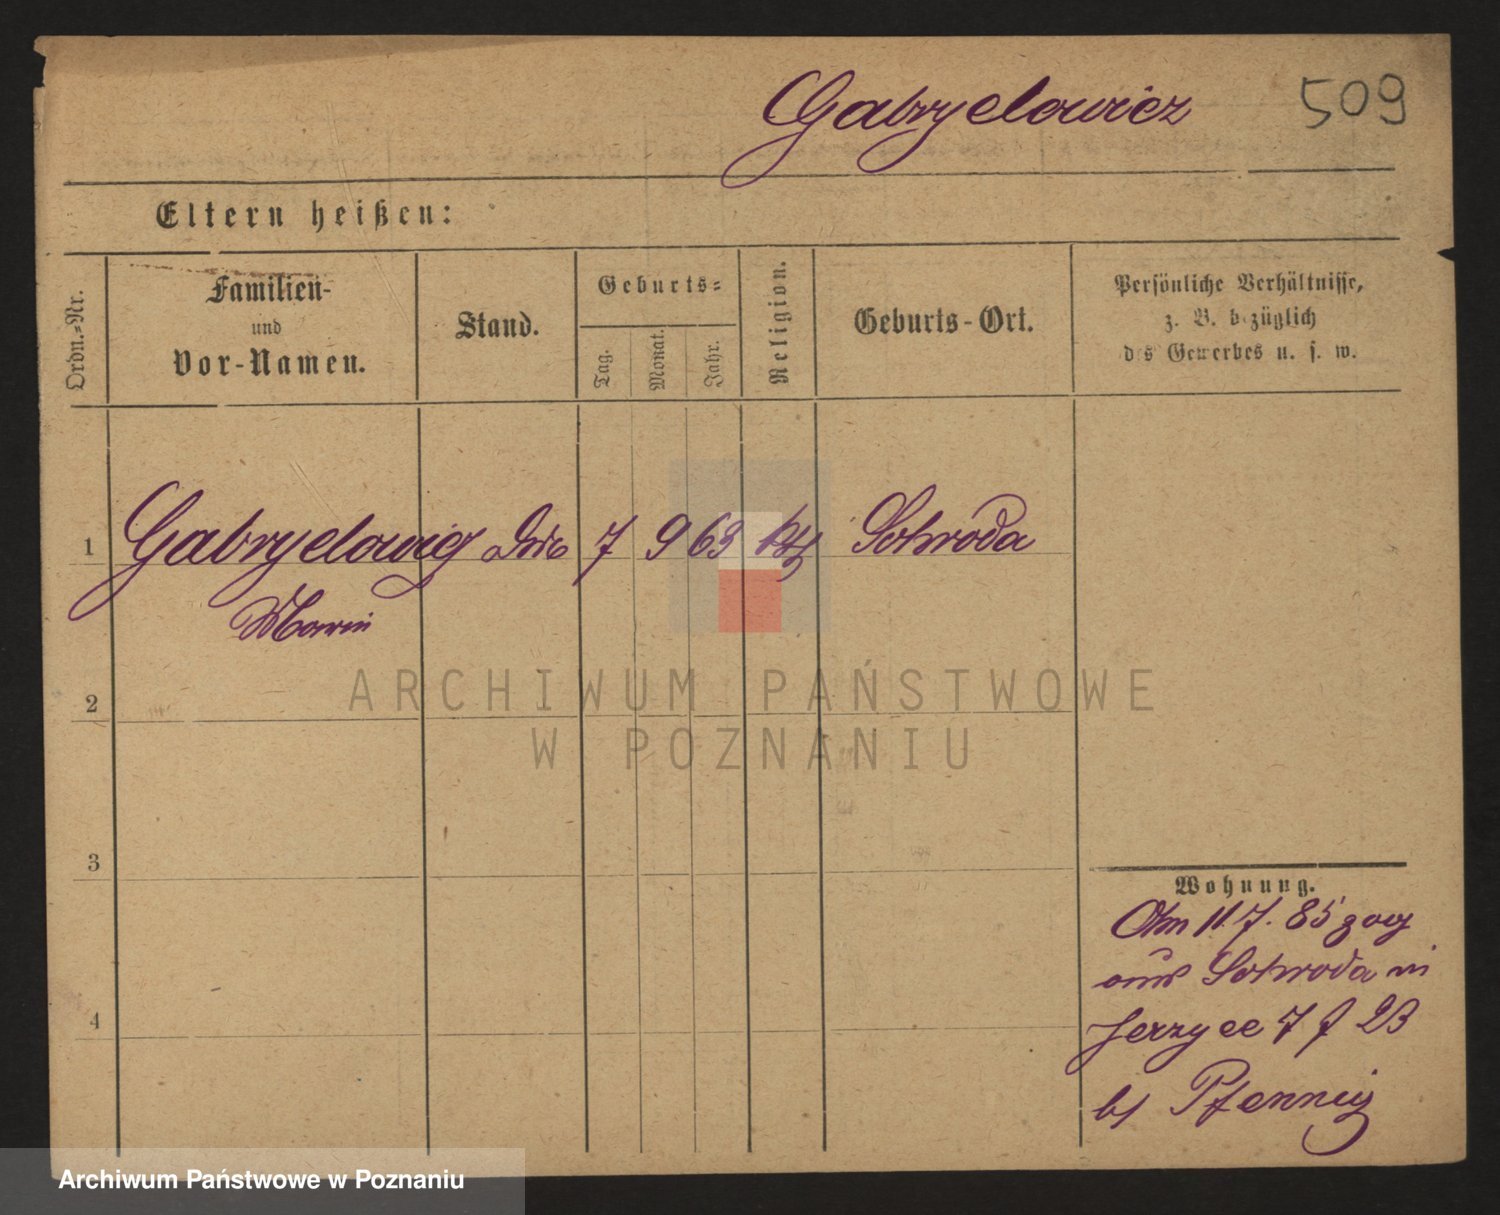 Gabryelowicz 509
Eltern heißen:
Ordn.-Nr.
Familien-
und
Vor-Namen.
Stand.
Geburts-
Tag.
Monat.
Jahr.
Religion.
Geburts-Ort.
Persönliche Verhältnisse,
z. B. bezüglich
des Gewerbes u. s. w.
1 Gabryelowicz 7 9 63 kth Schroda
2
3
4
Wohnung.
Am 11.7.85 zog
aus Schroda in
Jerzyce 7 f 23
b/ Pfennig
ARCHIWUM PAŃSTWOWE
W POZNANIU
Archiwum Państwowe w Poznaniu